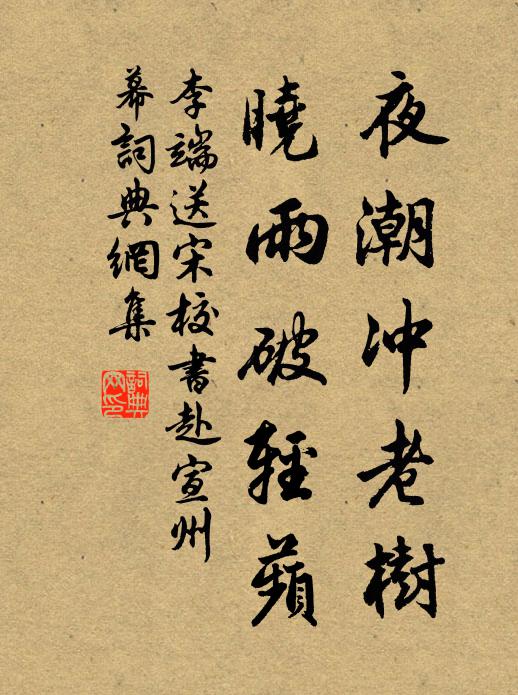 夜潮冲老樹
曉雨破輕蘋
李端送宋校書赴宣州
幕詞典網集
詞典網印